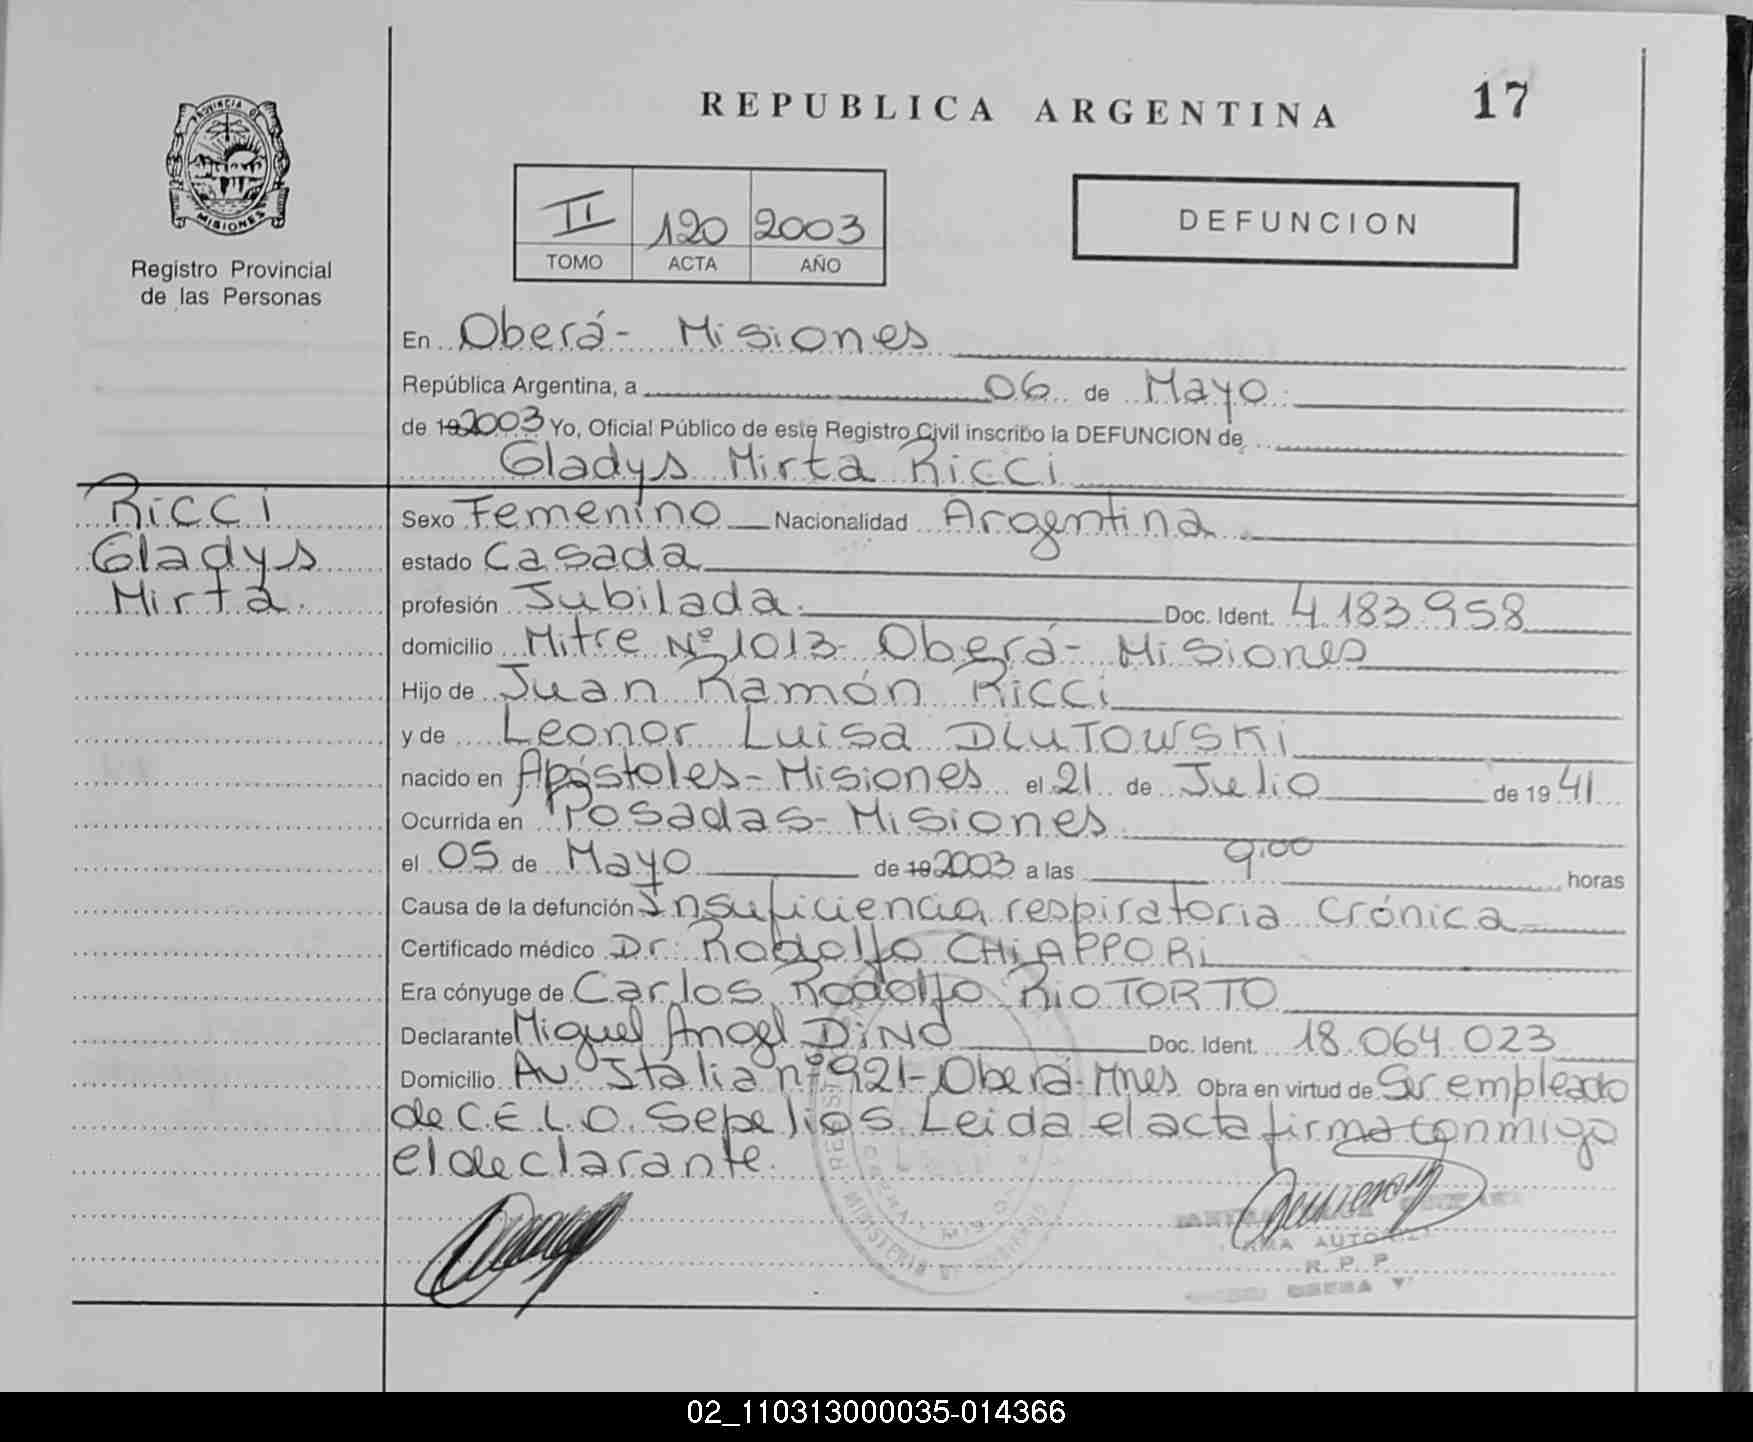 REPUBLICA ARGENTINA
17
PROVINCIA DE
MISIONES
Registro Provincial
de las Personas
II 120 2003
TOMO ACTA AÑO
DEFUNCION
En Oberá - Misiones
República Argentina, a 06 de Mayo
de 19 2003 Yo, Oficial Público de este Registro Civil inscribo la DEFUNCION de
Gladys Mirta Ricci
Ricci
Gladys
Mirta.
Sexo Femenino Nacionalidad Argentina
estado Casada
profesión Jubilada. Doc. Ident. 4.183.958
domicilio Mitre Nº 1013 - Oberá - Misiones
Hijo de Juan Ramón Ricci
y de Leonor Luisa DLUTOWSKi
nacido en Apóstoles - Misiones el 21 de Julio de 19 41
Ocurrida en Posadas - Misiones
el 05 de Mayo de 19 2003 a las 9.00 horas
Causa de la defunción Insuficiencia respiratoria crónica
Certificado médico Dr: Rodolfo CHiAPPORi
Era cónyuge de Carlos Rodolfo RiOTORTO
Declarante Miguel Angel DiNO Doc. Ident. 18.064.023
Domicilio Av Italia nº 921 - Oberá - Mnes Obra en virtud de Ser empleado
de C.E.L.O. Sepelios. Leida el acta firma conmigo
el declarante.
MINISTERIO DE GOBIERNO
R. P. P.
OBERA
02_110313000035-014366